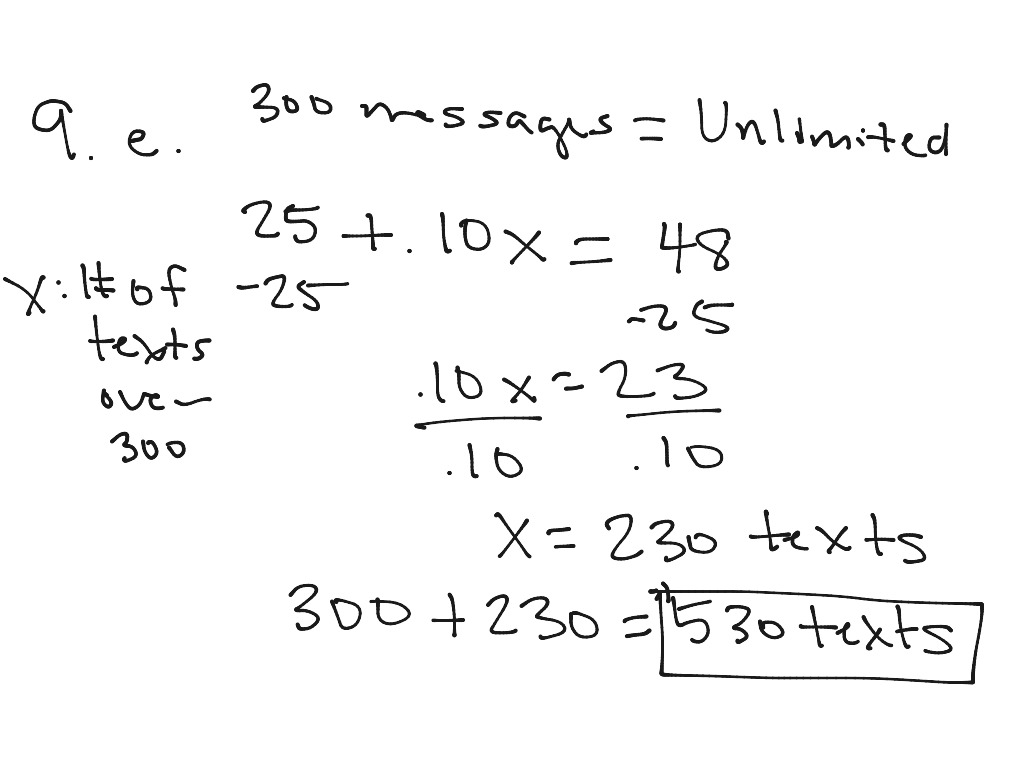 9. e. 300 messages = Unlimited
25 + .10x = 48
x: # of texts over 300
-25 -25
.10x = 23
.10 .10
x = 230 texts
300 + 230 = 530 texts